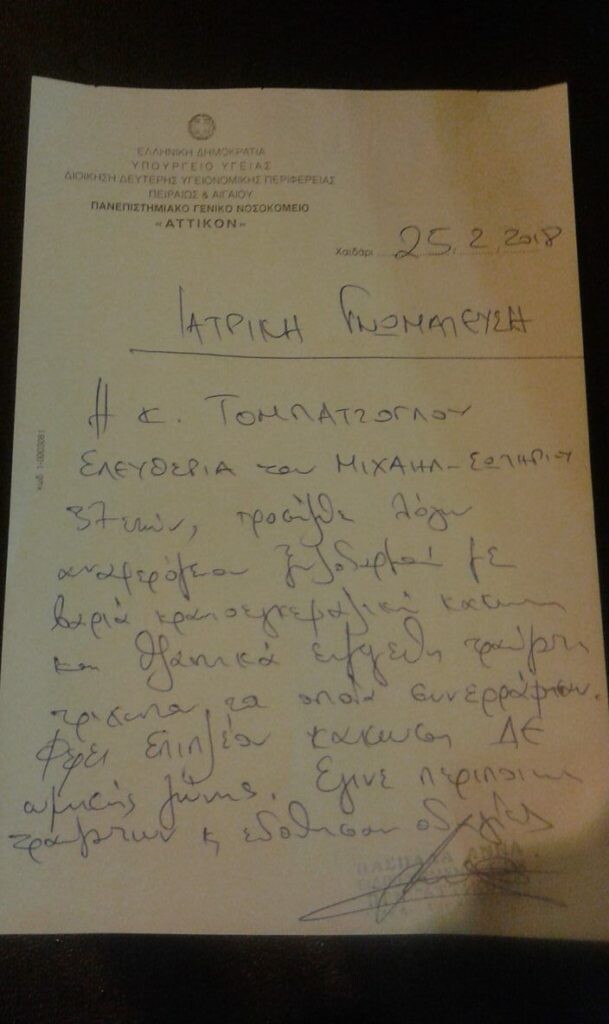 ΕΛΛΗΝΙΚΗ ΔΗΜΟΚΡΑΤΙΑ
ΥΠΟΥΡΓΕΙΟ ΥΓΕΙΑΣ
ΔΙΟΙΚΗΣΗ ΔΕΥΤΕΡΗΣ ΥΓΕΙΟΝΟΜΙΚΗΣ ΠΕΡΙΦΕΡΕΙΑΣ
ΠΕΙΡΑΙΩΣ & ΑΙΓΑΙΟΥ
ΠΑΝΕΠΙΣΤΗΜΙΑΚΟ ΓΕΝΙΚΟ ΝΟΣΟΚΟΜΕΙΟ
«ΑΤΤΙΚΟΝ»
Χαϊδάρι 25.2.2018
ΙΑΤΡΙΚΗ ΓΝΩΜΑΤΕΥΣΗ
Η κ. ΤΟΜΠΑΤΖΟΓΛΟΥ
ΕΛΕΥΘΕΡΙΑ του ΜΙΧΑΗΛ-ΣΩΤΗΡΙΟΥ
37 ετών, προσήλθε λόγω
αναφερόμενου ξυλοδαρμού με
βαριά κρανιοεγκεφαλική κάκωση
και θλαστικά τραύματα
τριχωτού τα οποία συνερράφησαν.
Φέρει επιπλέον κάκωση ΔΕ
ωμικής ζώνης. Έγινε περιποίηση
τραυμάτων κ εδόθησαν οδηγίες
ΑΝΝΑ